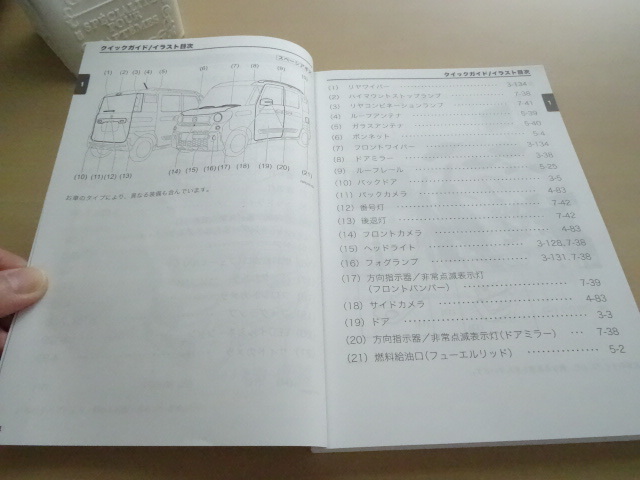 クイックガイド/イラスト目次
1
(1) (2) (3) (4) (5) (6) (7) (8) (9)
(10) (11) (12) (13) (14) (15) (16) (17) (18) (19) (20) (21)
お車のタイプにより、異なる装備も含んでいます。
クイックガイド/イラスト目次
1
(1) リヤワイパー 3-134
(2) ハイマウントストップランプ 7-38
(3) リヤコンビネーションランプ 7-41
(4) ルーフアンテナ 5-39
(5) ガラスアンテナ 5-40
(6) ボンネット 5-4
(7) フロントワイパー 3-134
(8) ドアミラー 3-38
(9) ルーフレール 5-25
(10) バックドア 3-5
(11) バックカメラ 4-83
(12) 番号灯 7-42
(13) 後退灯 7-42
(14) フロントカメラ 4-83
(15) ヘッドライト 3-128, 7-38
(16) フォグランプ 3-131, 7-38
(17) 方向指示器/非常点滅表示灯
(フロントバンパー) 7-39
(18) サイドカメラ 4-83
(19) ドア 3-3
(20) 方向指示器/非常点滅表示灯(ドアミラー) 7-38
(21) 燃料給油口(フューエルリッド) 5-2